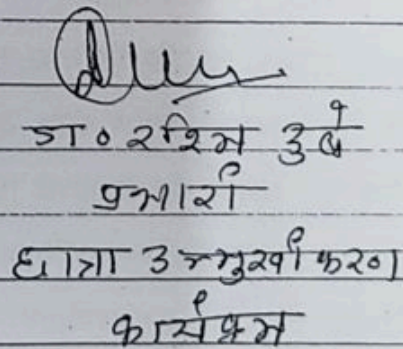 डा० रश्मि दुबे
प्रभारी
छात्रा उन्मुखीकरण
कार्यक्रम